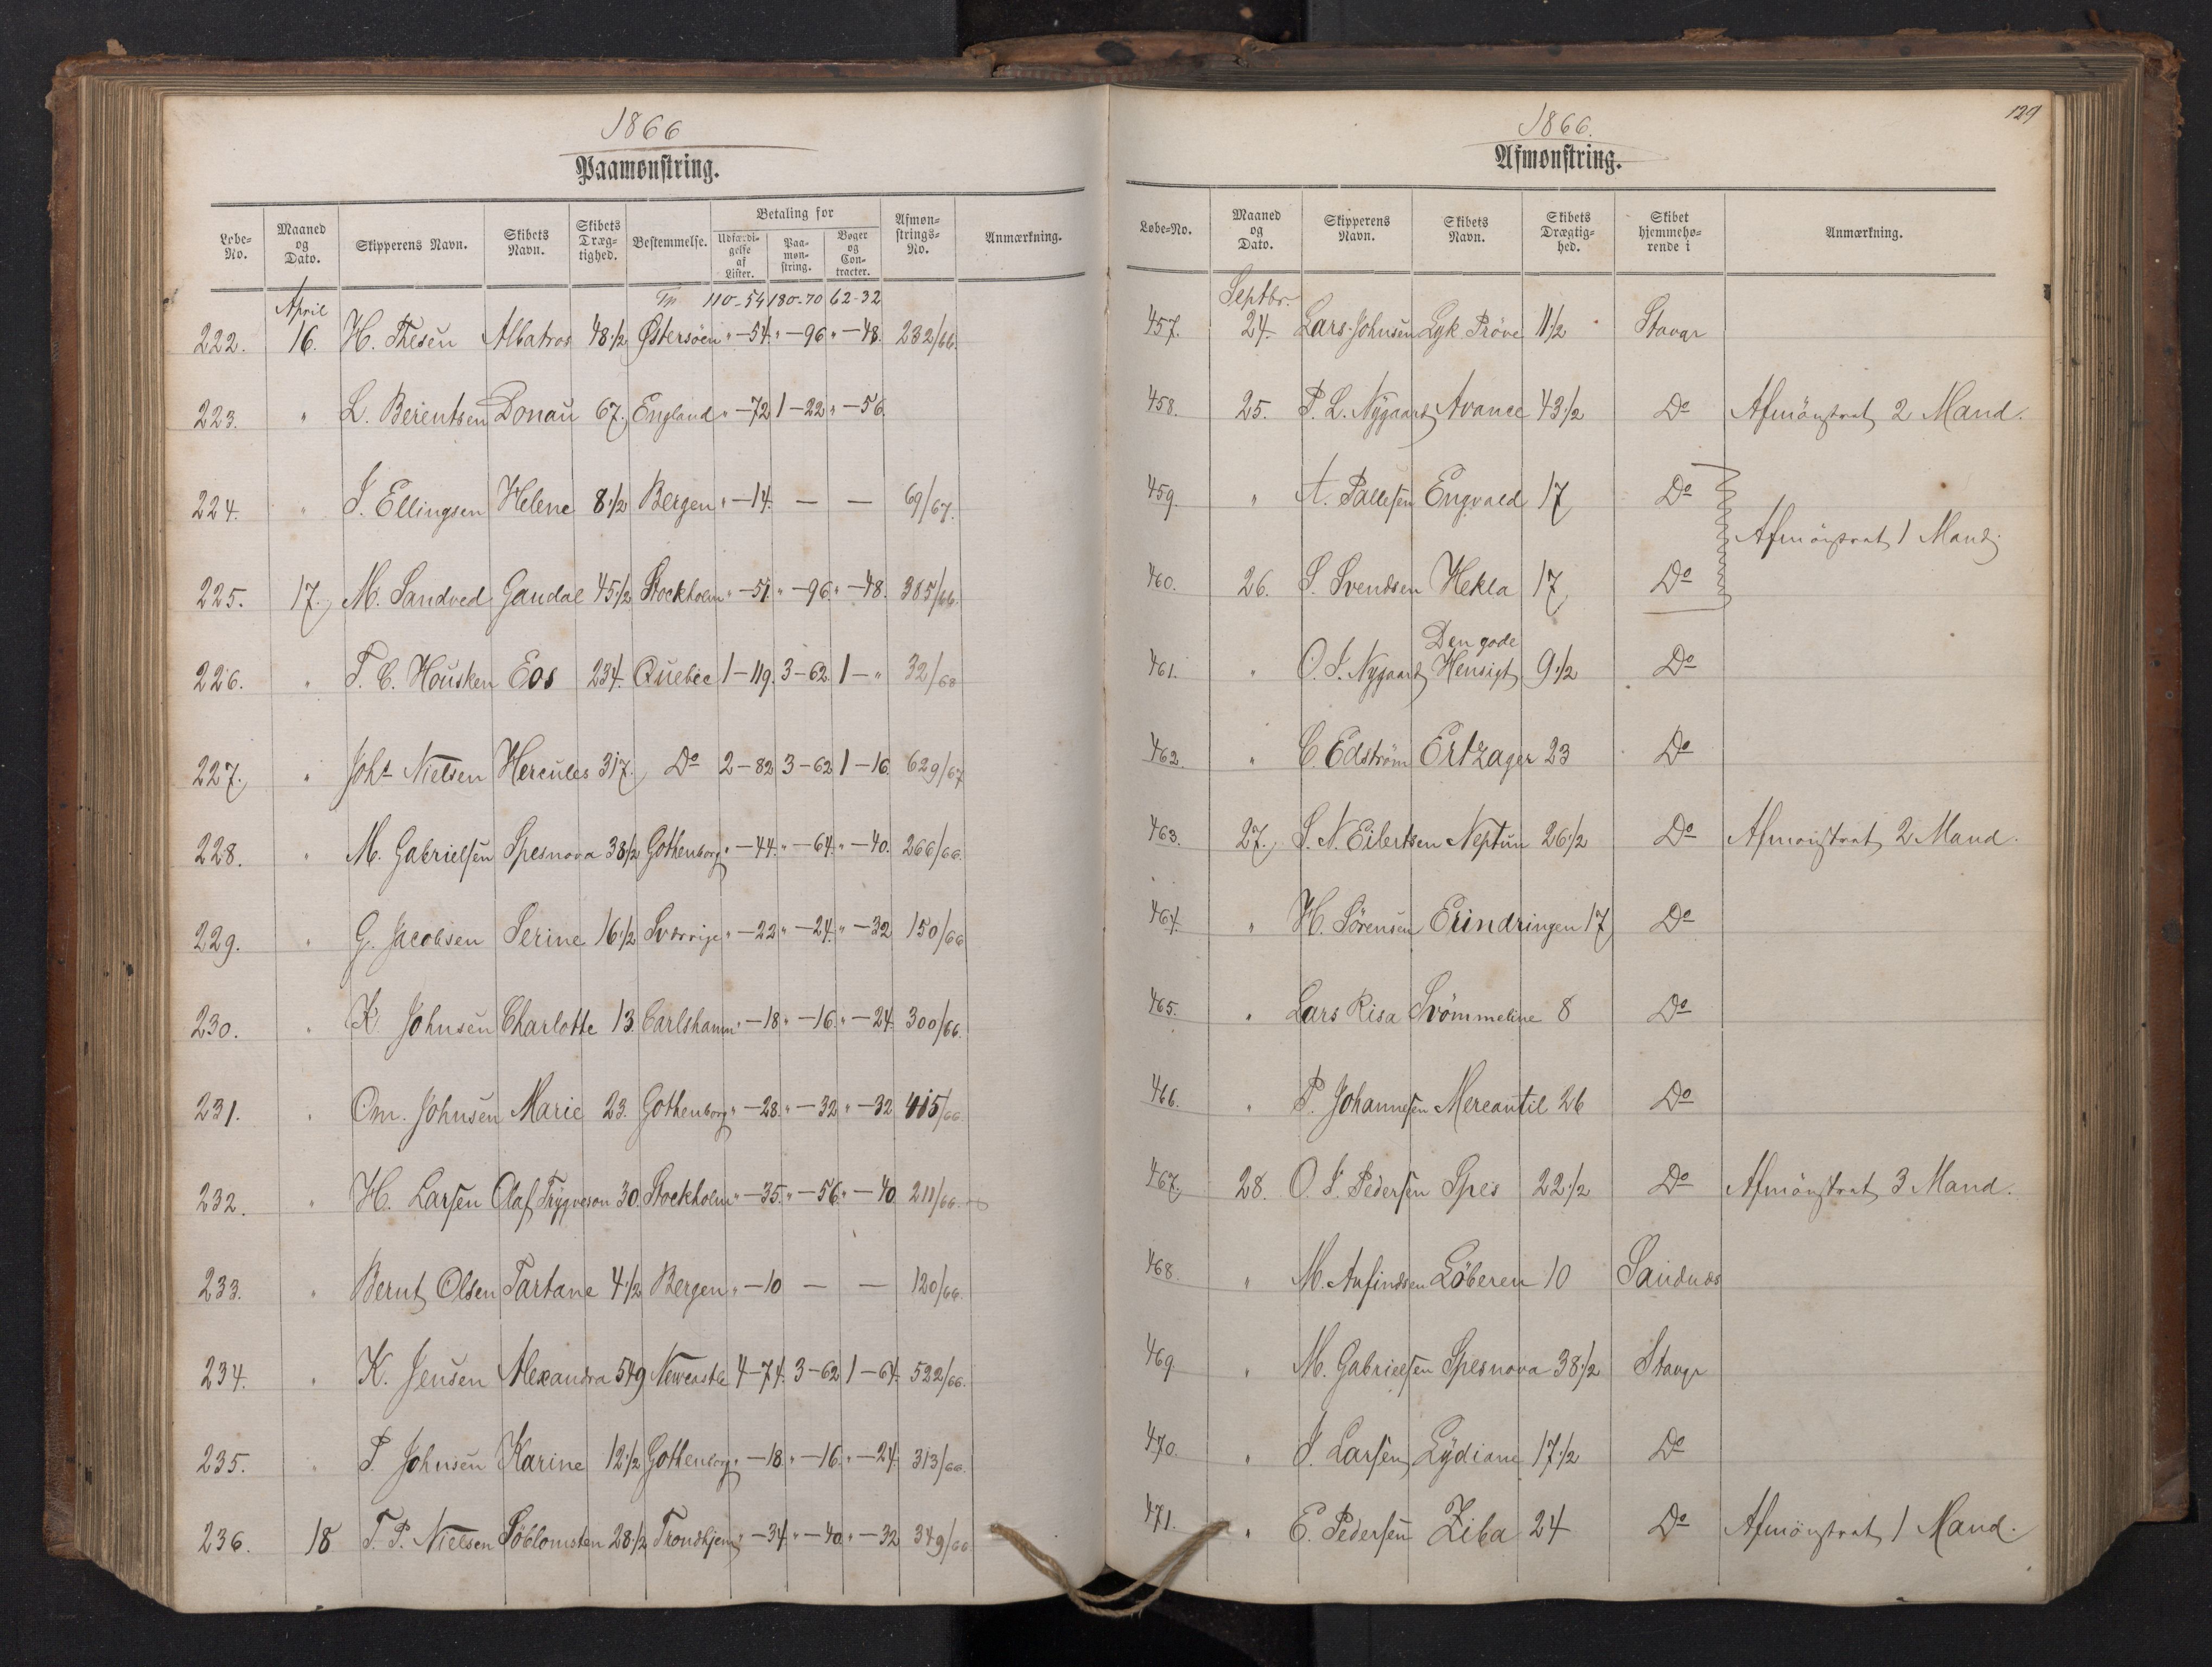 1866
Paamønstring.
Løbe-No. | Maaned og Dato. | Skipperens Navn. | Skibets Navn. | Skibets Drægtighed. | Bestemmelse. | Betaling for Udfærdigelse af Lister. | Paamønstring. | Bøger og Contracter. | Afmønstrings-No. | Anmærkning.
April | 110-54 | 180-70 | 62-32
222. | 16. | H. Thesen | Albatros | 48 1/2 | Østersöen | "-54. | "-96 | "-48. | 232/66.
223. | " | L. Berentsen | Donau | 67. | England | "-72 | 1-22 | "-56.
224. | " | J. Ellingsen | Helene | 8 1/2 | Bergen | "-14. | — | — | 69/67.
225. | 17. | M. Sandved | Gandal | 45 1/2 | Stockholm | "-51. | "-96. | "-48. | 385/66.
226. | " | T. C. Housken | Eos | 234. | Quebec | 1-119. | 3-62. | 1-" | 32/68
227. | " | Johs Nielsen | Hercules | 317. | Do | 2-82 | 3-62 | 1-16. | 629/67
228. | " | M. Gabrielsen | Spesnova | 38 1/2 | Gothenborg | "-44. | "-64. | "-40. | 266/66.
229. | " | G. Jacobsen | Serine | 16 1/2 | Sverrige | "-22 | "-24. | "-32 | 150/66
230. | " | K. Johnsen | Charlotte | 13. | Carlshamn | "-18. | "-16. | "-24. | 300/66.
231. | " | Om. Johnsen | Marie | 23. | Gothenborg | "-28. | "-32 | "-32 | 415/66
232. | " | H. Larsen | Olaf Trygveson | 30. | Stockholm | "-35. | "-56. | "-40. | 211/66.
233. | " | Bernt Olsen | Tartane | 4 1/2 | Bergen | "-10 | — | — | 120/66.
234. | " | K. Jensen | Alexandra | 549 | Newcastle | 4-74. | 3-62 | 1-64. | 522/66.
235. | " | P. Johnsen | Karine | 12 1/2 | Gothenborg | "-18. | "-16. | "-24. | 313/66.
236. | 18 | T. P. Nielsen | Söblomsten | 28 1/2 | Trondhjem | "-34. | "-40. | "-32 | 349/66
129
1866.
Afmønstring.
Løbe-No. | Maaned og Dato. | Skipperens Navn. | Skibets Navn. | Skibets Drægtighed. | Skibet hjemmehørende i | Anmærkning.
Septbr.
457. | 24. | Lars Johnsen | Lyk. Pröve | 11 1/2 | Stavgr
458. | 25. | P. L. Nygaard | Avance | 43 1/2 | Do | Afmönstrat 2 Mand.
459. | " | A. Pallesen | Engvald | 17 | Do
Afmönstrat 1 Mand.
460. | 26. | S. Svendsen | Hekla | 17 | Do
461. | " | O. J. Nygaard | Den gode Hensigt | 9 1/2 | Do
462. | " | C. Edström | Ertzager | 23 | Do
463. | 27. | S. N. Eilertsen | Neptun | 26 1/2 | Do | Afmönstrat 2 Mand.
464. | " | H. Sörensen | Erindringen | 17 | Do
465. | " | Lars Risa | Svömmeline | 8 | Do
466. | " | P. Johannesen | Mercantil | 26 | Do
467. | 28. | O. J. Pedersen | Spes | 22 1/2 | Do | Afmönstrat 3 Mand.
468. | " | M. Anfindsen | Löberen | 10 | Sandnæs
469. | " | M. Gabrielsen | Spesnova | 38 1/2 | Stavgr
470. | " | J. Larsen | Lydiane | 17 1/2 | Do
471. | " | E. Pedersen | Ziba | 24 | Do | Afmönstrat 1 Mand.